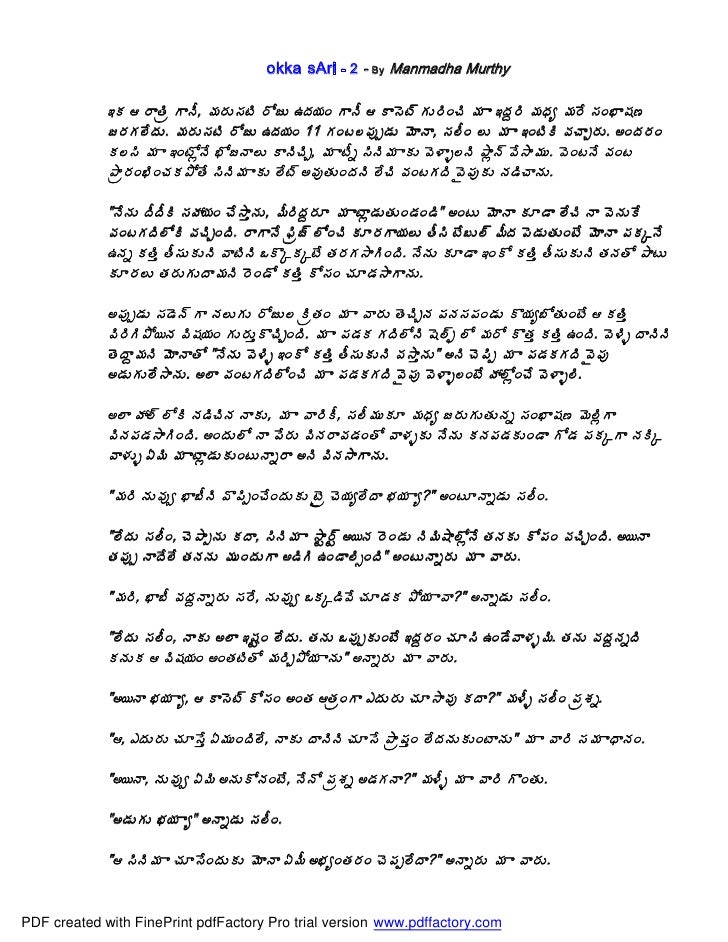 okka sAri - 2 - By Manmadha Murthy
ఇక ఆ రాత్రి గానీ, మరుసటి రోజు ఉదయం గానీ ఆ కాసెట్ గురించి మా ఇద్దరి మధ్య మరే సంభాషణ
జరగలేదు. మరుసటి రోజు ఉదయం 11 గంటలప్పుడు మోనా, సలీం లు మా ఇంటికి వచ్చారు. అందరం
కలసి మా ఇంట్లోనే భోజనాలు కానిచ్చి, మాట్నీ సినిమాకు వెళ్ళాలని ప్లాన్ వేసాము. వెంటనే వంట
ప్రారంభించకపోతే సినిమాకు లేట్ అవుతుందని లేచి వంటగది వైపుకు నడిచాను.
"నేను దీదీకి సహాయం చేస్తాను, మీరిద్దరూ మాట్లాడుతుండండి" అంటు మోనా కూడా లేచి నా వెనుకే
వంటగదిలోకి వచ్చింది. రాగానే ఫ్రిజ్ లోంచి కూరగాయలు తీసి టేబుల్ మీద పెడుతుంటే మోనా పక్కనే
ఉన్న కత్తి తీసుకుని వాటిని ఒక్కొక్కటే తరగసాగింది. నేను కూడా ఇంకో కత్తి తీసుకుని తనతో పాటు
కూరలు తరుగుదామని రెండో కత్తి కోసం చూడసాగాను.
అప్పుడు సడెన్ గా నలుగు రోజుల క్రితం మా వారు తెచ్చిన పనసపండు కొయ్యబోతుంటే ఆ కత్తి
విరిగిపోయిన విషయం గుర్తుకొచ్చింది. మా పడక గదిలోని షెల్ఫ్ లో మరో కొత్త కత్తి ఉంది. వెళ్ళి దానిని
తెద్దామని మోనాతో "నేను వెళ్ళి ఇంకో కత్తి తీసుకుని వస్తాను" అని చెప్పి మా పడకగది వైపు
అడుగులేసాను. అలా వంటగదిలోంచి మా పడకగది వైపు వెళ్ళాలంటే హాల్లోంచే వెళ్ళాలి.
అలా హాల్ లోకి నడిచిన నాకు, మా వారికీ, సలీముకూ మధ్య జరుగుతున్న సంభాషణ మెల్లిగా
వినపడసాగింది. అందులో నా పేరు వినరావడంతో వాళ్ళకు నేను కనపడకుండా గోడ పక్కగా నక్కి
వాళ్ళు ఏమి మాట్లాడుకుంటున్నారా అని వినసాగాను.
"మరి నువ్వు భాబీని వొప్పించేందుకు ట్రై చెయ్యలేదా భయ్యా?" అంటూన్నాడు సలీం.
"లేదు సలీం, చెప్పాను కదా, సినిమా స్టార్ట్ అయిన రెండు నిమిషాల్లోనే తనకు కోపం వచ్చింది. అయినా
తప్పు నాదేలే తనను ముందుగా అడిగి ఉండాల్సింది" అంటున్నారు మా వారు.
"మరి, భాబీ వద్దన్నారు సరే, నువ్వు ఒక్కడివే చూడక పోయావా?" అన్నాడు సలీం.
"లేదు సలీం, నాకు అలా ఇష్టం లేదు. తను ఒప్పుకుంటే ఇద్దరం చూసి ఉండేవాళ్ళమి. తను వద్దన్నది
కనుక ఆ విషయం అంతటితో మర్చిపోయాను" అన్నారు మా వారు.
"అయినా భయ్యా, ఆ కాసెట్ కోసం అంత ఆత్రంగా ఎదురు చూసావు కదా?" మళ్ళీ సలీం ప్రశ్న.
"ఆ, ఎదురు చూస్తే ఏముందిలే, నాకు దానిని చూసే ప్రాప్తం లేదనుకుంటాను" మా వారి సమాధానం.
"అయినా, నువ్వు ఏమి అనుకోనంటే, నేనో ప్రశ్న అడగనా?" మళ్ళీ మా వారి గొంతు.
"అడుగు భయ్యా" అన్నాడు సలీం.
"ఆ సినిమా చూసేందుకు మోనా ఏమీ అభ్యంతరం చెప్పలేదా?" అన్నారు మా వారు.
PDF created with FinePrint pdfFactory Pro trial version www.pdffactory.com